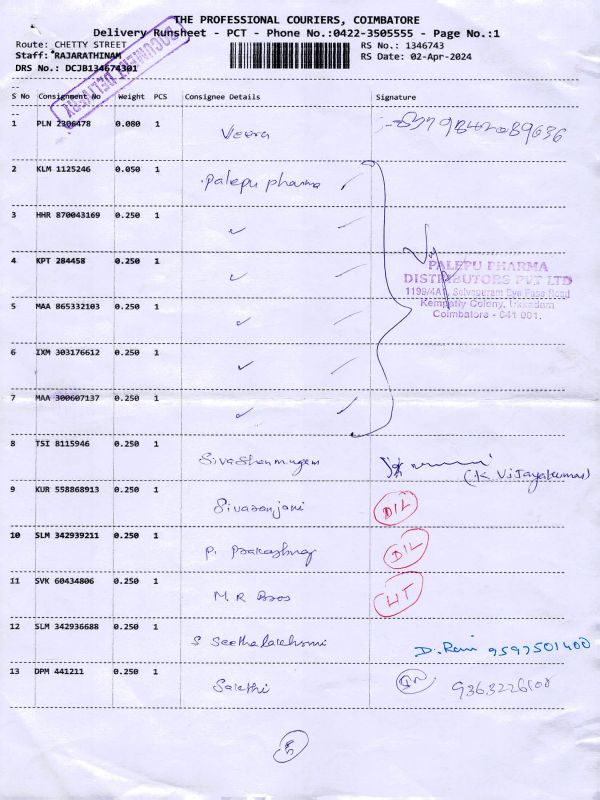 THE PROFESSIONAL COURIERS, COIMBATORE
Delivery Runsheet - PCT - Phone No.:0422-3505555 - Page No.:1
Route: CHETTY STREET RS No.: 1346743
Staff: *RAJARATHINAM RS Date: 02-Apr-2024
DRS No.: DCJB134674301
DOCUMENT DELIVERY
S No Consignment No Weight PCS Consignee Details Signature
1 PLN 2306478 0.080 1 Veera
2 KLM 1125246 0.050 1 Palepu pharma
3 HHR 870043169 0.250 1 ✓
4 KPT 284458 0.250 1 ✓
PALEPU PHARMA
DISTRIBUTORS PVT LTD
Kempatty Colony, Ukkadam
Coimbatore - 641 001.
5 MAA 865332103 0.250 1 ✓
6 IXM 303176612 0.250 1 ✓
7 MAA 300607137 0.250 1 ✓
8 TSI 8115946 0.250 1 Sivashanmugam (K Vijayakumar)
9 KUR 558868913 0.250 1 Sivaranjani D/L
10 SLM 342939211 0.250 1 P. Prakashraj D/L
11 SVK 60434806 0.250 1 M. R Bros
12 SLM 342936688 0.250 1 S Seethalakshmi D. Rani 9597501400
13 DPM 441211 0.250 1 Sakthi
5